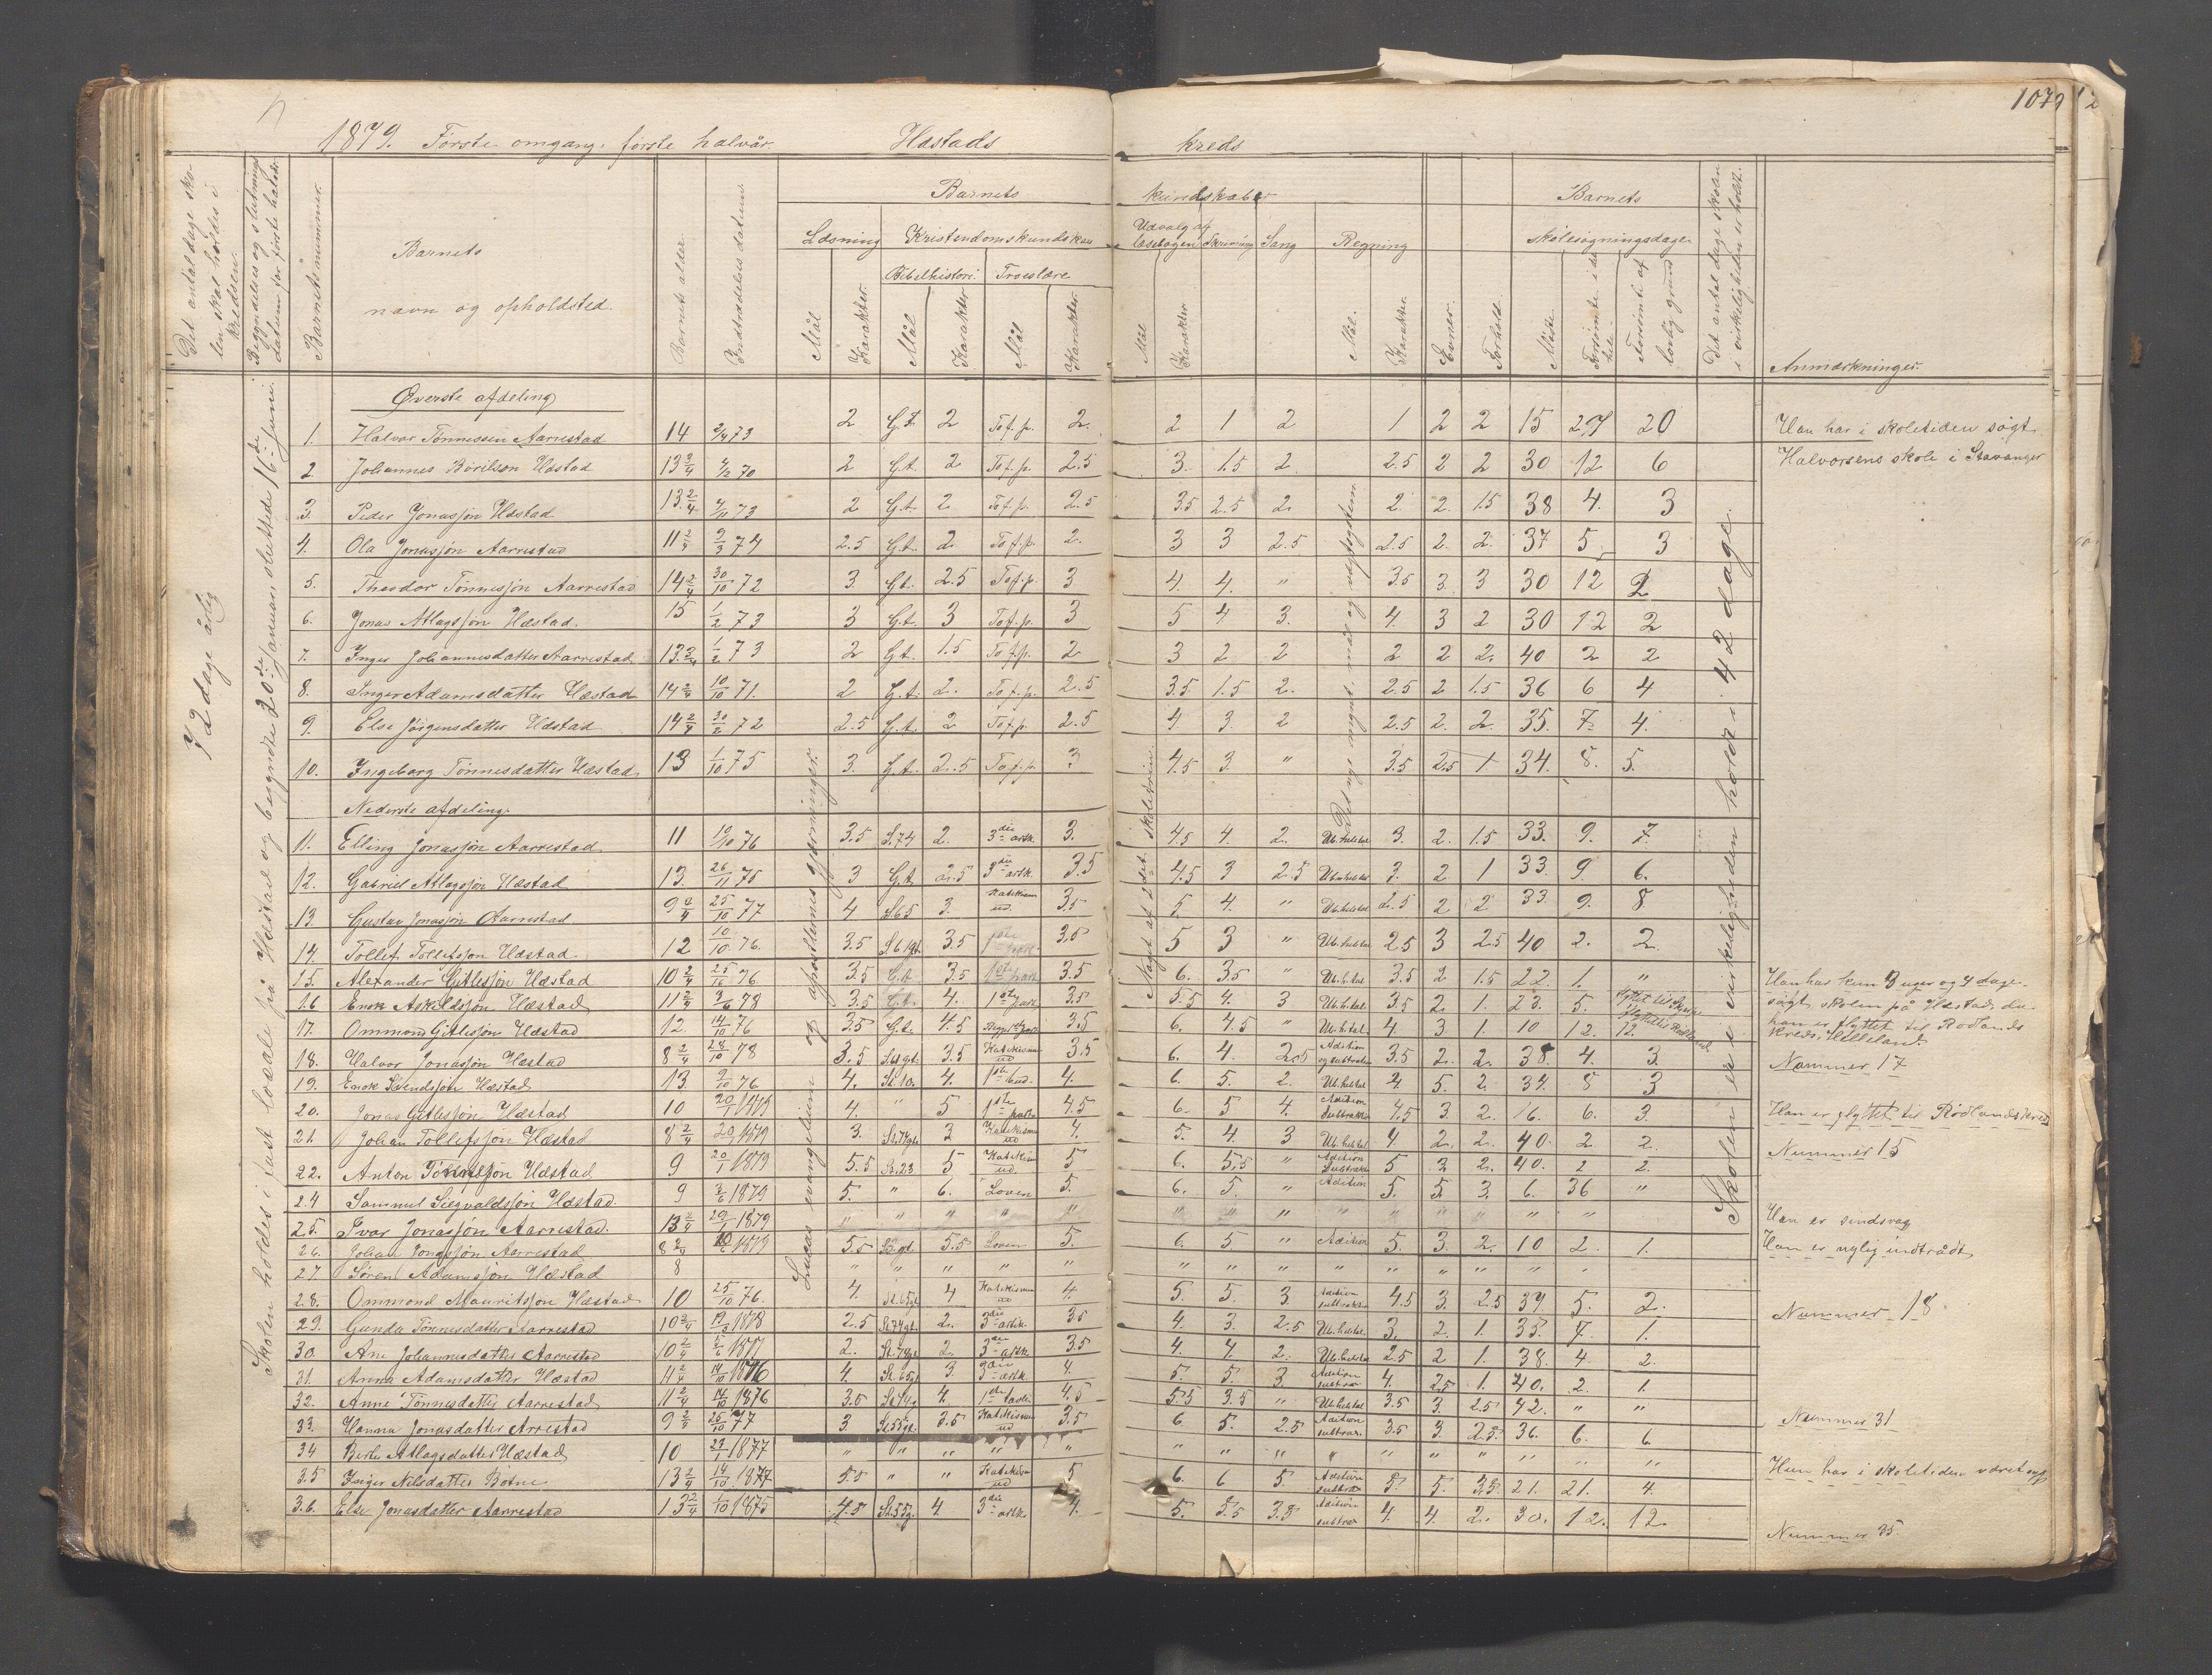 1079
1879. Første omgang, første halvår. Hæstads kreds
Det antal dage skolen skal holdes i kredsen.
Begyndelses og slutnings datum for første halvår.
Barnets nummer.
Barnets navn og opholdsted.
Barnets alder.
Indtrædelses datum.
Barnets kundskaber
Læsning
Kristendomskundskab
Bibelhistori.
Troeslære
Udvalg af læsebogen
Skrivning
Sang
Regning
Mål
Karakter.
Mål
Karakter
Mål
Karakter.
Mål
Karakter
Mål.
Karakter.
Evner.
Forhold.
Barnets skolesøgningsdage
Mødte.
Forsømte i det hele.
Forsømte af lovlig grund
Det antal dage skolen i virkeligheden er holdt.
Anmærkninger.
72 dage årlig
Skolen holdes i fast locale på Hæstad og begyndte 20de januar sluttede 16de juni
Lucas evangelium og apostlernes gjerninger.
Noget af 2det skoletrin
Det nye mynt, mål og vægtsystem.
Skolen er i virkeligheden holdt i 42 dage.
Øverste afdeling
1. Halvor Tønnessen Aarrestad 14 2/4 73 2 G.t. 2 To f.p. 2. 2 1 2 1 2 2 15 27 20 Han har i skoletiden søgt
2. Johannes Børilson Hæstad 13 3/4 4/2 70 2 G.t. 2 To f.p. 2.5 3. 1.5 2 2.5 2 2 30 12 6 Halvorsens skole i Stavanger
3. Peder Jonasjøn Hæstad 13 2/4 4/10 73 2 G.t. 2 To f.p. 2.5 3.5 2.5 2. 2. 2. 1.5 38 4. 3
4. Ola Jonasjøn Aarrestad 11 2/4 9/3 74 2.5 G.t. 2. To f.p. 2. 3 3 2.5 2.5 2. 2. 37 5 3
5. Theodor Tønnesjøn Aarrestad 14 2/4 30/10 72 3 G.t. 2.5 To f.p. 3 4. 4. " 3.5 3. 3 30 12 2
6. Jonas Atlagsjøn Hæstad. 15 1/2 73 3 G.t. 3 To f.p. 3 5 4 3. 4. 3 2 30 12 2
7. Inger Johannesdatter Aarrestad 13 3/4 1/2 73 2 G.t. 1.5 To f.p. 2 3 2 2 2 2 2. 40 2 2
8. Inger Adamsdatter Hæstad 14 2/4 10/10 71. 2 G.t. 2. To f.p. 2.5 3.5 1.5 2. 2.5 2 1.5 36 6 4
9. Else Jørgensdatter Hæstad 14 2/4 30/2 72 2.5 G.t. 2 To f.p. 2.5 4 3. 2 2.5 2. 2. 35. 7 4.
10. Ingeborg Tønnesdatter Hæstad 13 1/10 75 3. G.t. 2.5 To f.p. 3 4.5 3. " 3.5 2.5 1. 34. 8. 5.
Nederste afdeling.
11. Elling Jonasjøn Aarrestad. 11 10/10 76 3.5 S.74 2. 3die artk. 3. 4.5 4. 2. Ub. heltal 3. 2. 1.5 33. 9. 7.
12. Gabriel Atlagsjøn Hæstad 13. 26/11 75 3 G.t. 2.5 3die artk. 3.5 4.5 3 2.5 Ub. heltal 3. 2 1 33. 9. 6.
13. Gustav Jonasjøn Aarrestad. 9 2/4 25/10 77 4 S.65 3. Katekism ud. 3.5 5. 4. " Ub. heltal 2.5 2 2 33. 9. 8
14. Tollef Tollefsjøn Hæstad. 12 10/10 76. 3.5 3.5 3.5 5 3 " Ub. heltal 2.5 3 2.5 40 2. 2
15. Alexander Gitlesjøn Hæstad 10 2/4 25/10 76. 3.5 G.t 3.5 1ste part 3.5 6. 3.5 " Ub. h.tal 3.5 2 1.5 22. 1. " Han har kun 3 uger og 4 dage
16 Enok Askildsjøn Hæstad 11 2/4 3/6 78 3.5 G.t. 4. 1ste part 3.5 5.5 4. 3 Ub. h.tal 3.5 2. 1. 23. 5. søgt skolen på Hæstad, da
17. Ommond Gitlesjøn Hæstad 12. 14/10 76 3.5 G.t. 4.5 3.5 6. 4.5 " Ub. h.tal 4. 3 1. 10 12. 12. han er flyttet til Rødlands kreds, Helleland.
18. Halvor Jonasjøn Hæstad 8 2/4 28/10 78 3.5 3.5 Katekism ud 3.5 6. 4. 2.5 Adition og subtraktion 3.5 2. 2. 38. 4. 3 Nommer 17
19. Enok Svendsjøn Hæstad 13 9/10 76. 4. St. 10. 4. 1ste bud. 4. 6. 5. 2. Ub. heltal 4 5. 2. 34. 8 3
20. Jonas Gitlesjøn Hæstad 10 20/1 1879 4. " 5 1ste part 4.5 6. 5 4. Adition Subtrakt 4.5 3. 2. 16. 6. 3. Han er flyttet til Rødlands kreds
21. Johan Tollefsjøn Hæstad 8 2/4 20/1 1879 3. 3 Katekism ud 4. 5. 4. 3 Ub. heltal 4. 2. 2. 40. 2 2. Nummer 15
22. Anton Tønnesjøn Hæstad 9 20/1 1879 5.5 St. 23 5 Katekism ud. 5 6. 5.5 " Adition Subtrakt 5 3 2. 40. 2 2.
24 Sammel Siegvaldsjøn Hæstad. 9 3/6 1879 5. " 6. Loven 5. 6. 5. " Adition 5. 5. 3. 6. 36 "
25. Ivar Jonasjøn Aarrestad. 13 2/4 20/1 1879 " " " " " " " " " " " " " " " Han er sindsvag
26. Johan Jonasjøn Aarrestad 8 2/4 1879 5.5 5.5 Loven 5. 6. 5 " Adition 5. 3. 2. 10 2. 1. Han er nylig indtrådt
27 Søren Adamsjøn Hæstad 8 " " " " " " " " " " " " " "
28. Ommond Mauritsjøn Hæstad 10 25/10 76. 4. 4 Katekism ud 4. 5. 5. 3. Adition subtrakt 4.5 3. 2.5 34. 5. 2. Nummer 18
29. Gunda Tønnesdatter Aarrestad 10 2/4 1878 2.5 2. 3die artk. 3.5 4. 3. 2.5 Ub. heltal 3. 2. 1. 35. 7. 1.
30. Ane Johannesdatter Aarrestad 10 2/4 5/6 1877 2. 2. 3die artk. 3.5 4. 4. 2. Ub. heltal 2.5 2 1. 38. 4. 2.
31. Anna Adamsdatter Hæstad 11 2/4 14/10 1876 4. 3. 3die artk 4. 5. 5. 3. Adition subtrak 4. 2.5 1. 40. 2. 1.
32. Anne Tønnesdatter Aarrestad 11 2/4 14/10 1876 3.5 4. 4.5 5.5 3.5 " Ub. heltal 3.5 3. 2.5 42. " " Nummer 31
33. Hanna Jonasdatter Arrestad 9 2/4 25/10 77 3. 3.5 Katekism ud 3.5 6 5. 2.5 Adition subtrak. 3.5 3. 2.5. 36. 6. 6
34 Berte Atlagsdatter Hæstad 10 23/1 1877 " " " " " " " " " " " " " " "
35 Inger Nilsdatter Botne 13 2/4 14/10 1877 5.5 " " Katekism ud 5 6. 6 5. Adition subtrak 5. 5. 3.5. 21. 21. 4. Hun har i skoletiden været syg
36. Else Jonasdatter Aarrestad 13 2/4 1/10 1875 4.5 4. 3die artk. 4. 5. 5.5 3.5 Adition subtrak 4. 4. 2. 30. 12. 12. Nummer 35